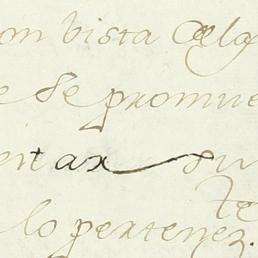 on vista Celo
e se promue
entar su
te
lo pertenez.